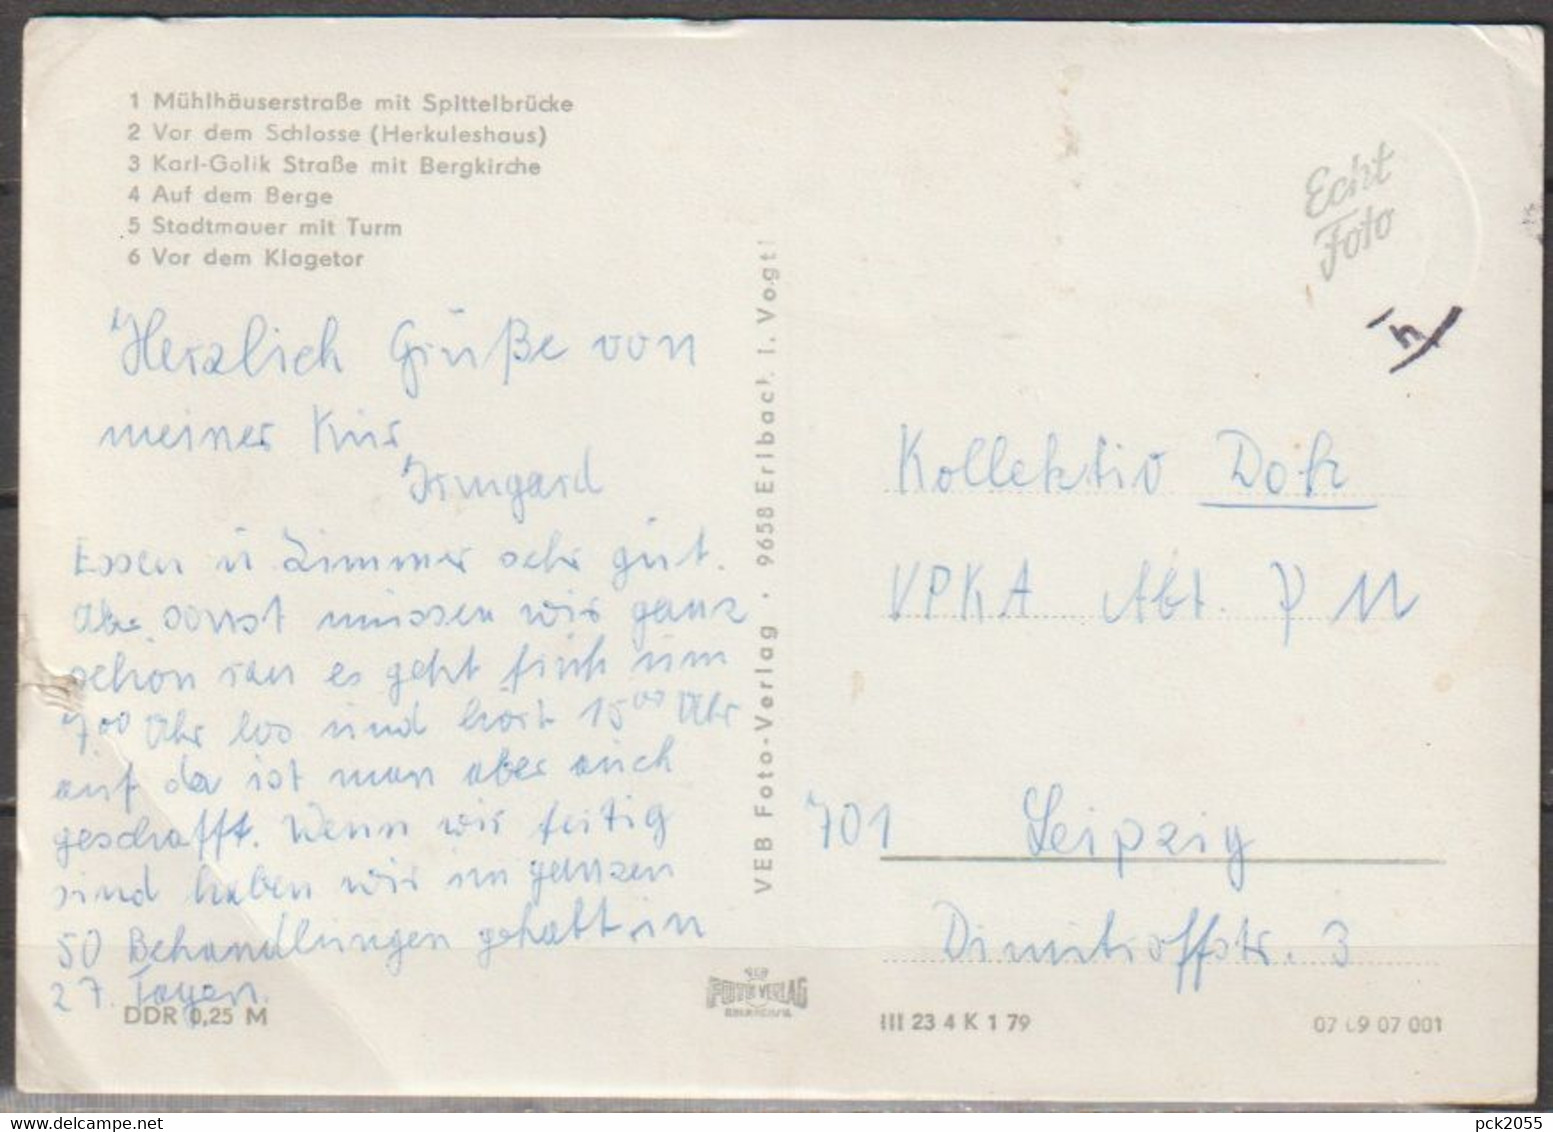 1 Mühlhäuserstraße mit Spittelbrücke
2 Vor dem Schlosse (Herkuleshaus)
3 Karl-Golik Straße mit Bergkirche
4 Auf dem Berge
5 Stadtmauer mit Turm
6 Vor dem Klagetor
Herzlich Grüße von
meiner Kur
Irmgard
Essen u Zimmer sehr gut.
Aber sonst müssen wir ganz
schön ran es geht früh um
7.00 Uhr los und hört 15 00 Uhr
auf da ist man aber auch
geschafft. Wenn wir fertig
sind haben wir im ganzen
50 Behandlungen gehabt in
27. Tagen.
DDR 0,25 M
VEB Foto-Verlag · 9658 Erlbach i. Vogtl
FOTO VERLAG
Echt
Foto
h
Kollektiv Dok
VPKA Abt. PM
701 Leipzig
Dimitroffstr. 3
III 23 4 K 1 79
07 09 07 001
delcampe.net
pck2055